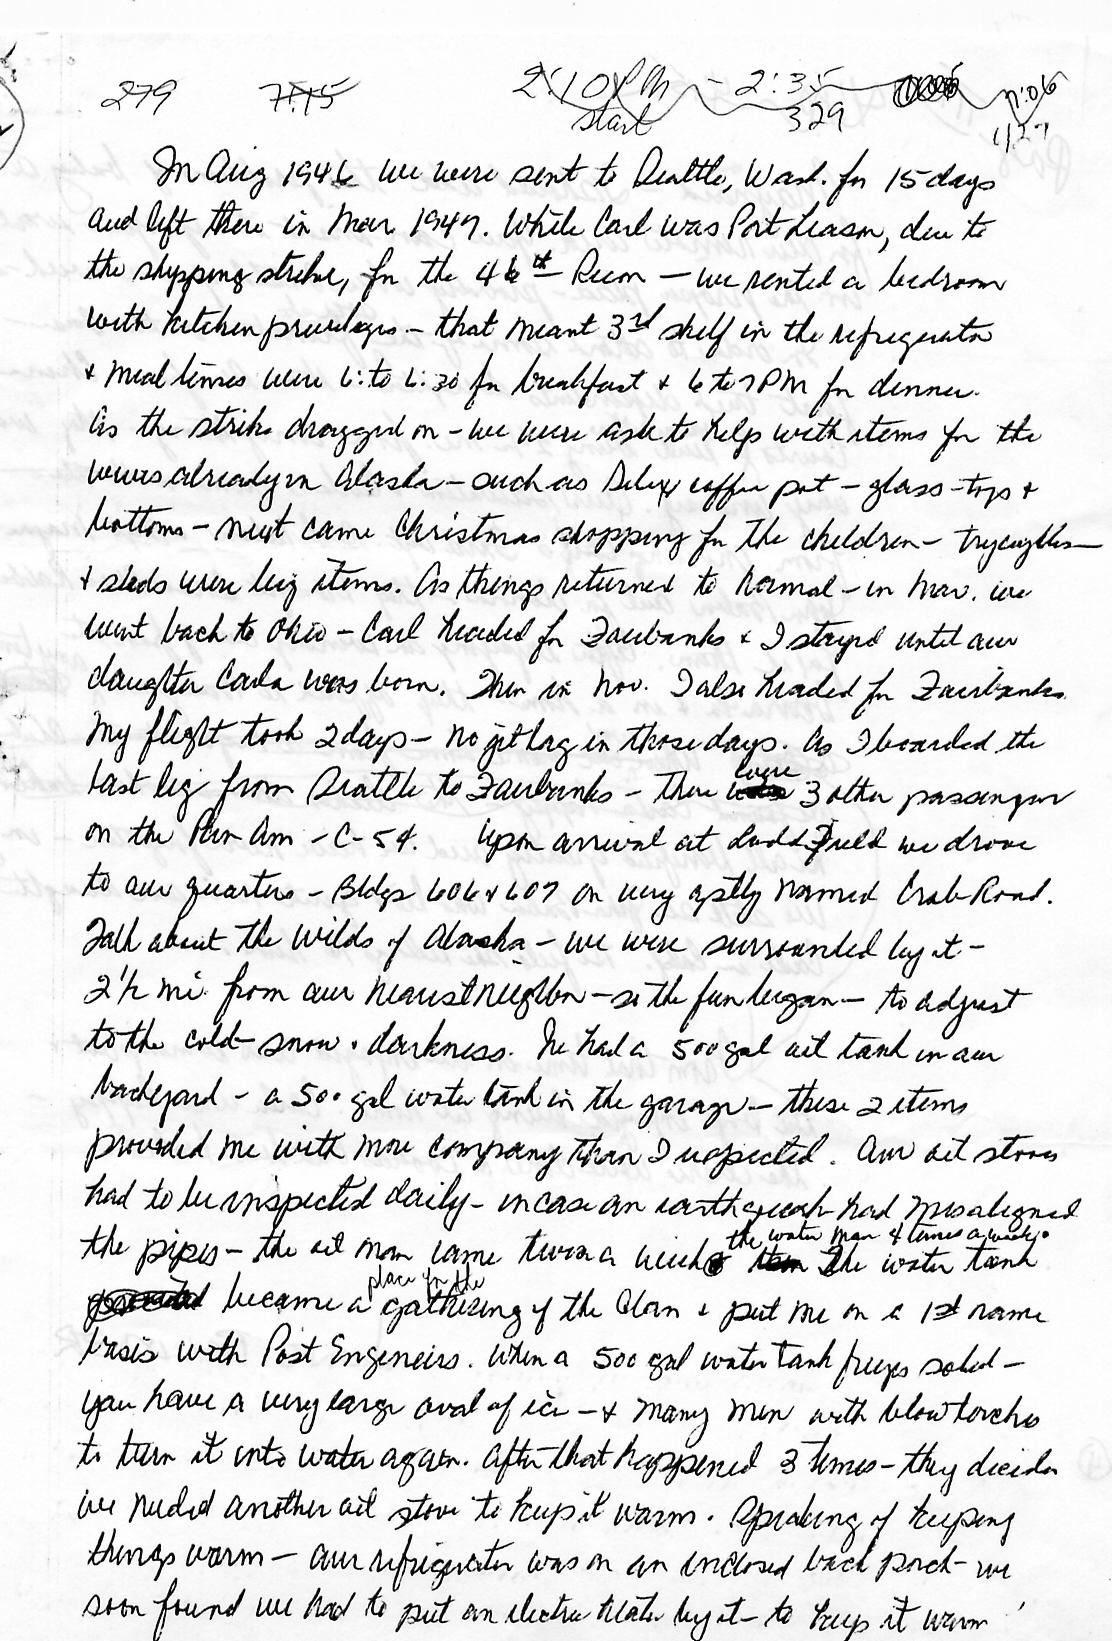 279 7:45 2:10 PM - 2:35
start 329
In Aug 1946 we were sent to Seattle, Wash. for 15 days
and left there in Mar 1947. While Carl was Port Liason, due to
the shipping strike, for the 46th Recon - we rented a bedroom
with kitchen privileges - that meant 3rd shelf in the refrigerator
& meal times were 6: to 6:30 for breakfast & 6 to 7 PM for dinner.
As the strike dragged on - we were ask to help with items for the
wives already in Alaska - such as Silex coffee pot - glass - tops &
bottoms - next came Christmas shopping for the children - trycycles -
& sleds were big items. As things returned to normal - in Mar. we
went back to Ohio - Carl headed for Fairbanks & I stayed until our
daughter Carla was born. Then in Nov. I also headed for Fairbanks.
My flight took 2 days - no jet lag in those days. As I boarded the
last leg from Seattle to Fairbanks - there were 3 other passengers
on the Pan Am - C-54. Upon arrival at Ladd Field we drove
to our quarters - Bldgs 606 & 607 on very aptly named Crab Road.
Talk about the wilds of Alaska - we were surrounded by it -
2 1/2 mi. from our nearest neighbor - so the fun began - to adjust
to the cold - snow & darkness. We had a 500 gal oil tank in our
backyard - a 500 gal water tank in the garage - these 2 items
provided me with more company than I expected. Our oil stoves
had to be inspected daily - in case an earthquake had misaligned
the pipes - the oil man came twice a week & the water man 4 times a week. The water tank
became a place for the gathering of the Clan & put me on a 1st name
basis with Post Engineers. When a 500 gal water tank freezes solid -
you have a very large oval of ice - & many men with blow torches
to turn it into water again. After that happened 3 times - they decided
we needed another oil stove to keep it warm. Speaking of keeping
things warm - our refrigerator was on an enclosed back porch - we
soon found we had to put an electric heater by it - to keep it warm